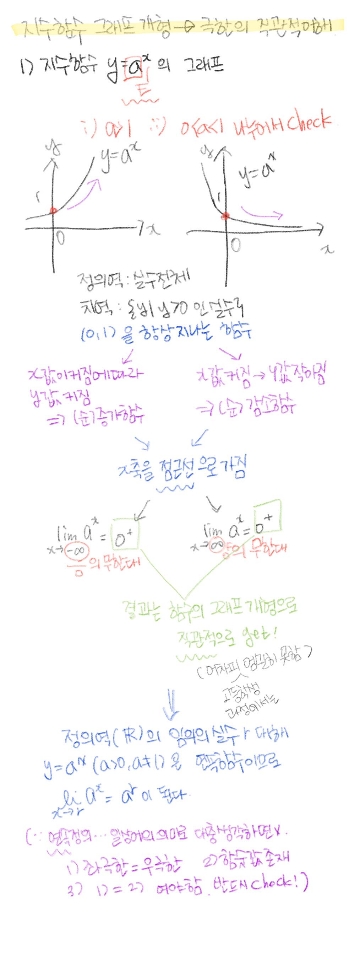 지수함수 그래프 개형 → 극한의 직관적이해
1) 지수함수 y=aˣ의 그래프
i) a>1 ii) 0<a<1 나누어서 check
y
y=aˣ
1
0
x
y
y=aˣ
1
0
x
정의역 : 실수전체
치역 : {y|y>0인 실수}
(0,1)을 항상 지나는 함수
x값이 커짐에 따라
y값 커짐
⇒ (순)증가함수
x값 커짐 → y값 작아짐
⇒ (순)감소함수
x축을 점근선으로 가짐
lim aˣ = 0⁺
x→-∞
음의 무한대
lim aˣ = 0⁺
x→∞
양의 무한대
결과는 함수의 그래프 개형으로
직관적으로 get!
(어차피 엄밀히 못함)
고등학생
과정에서는
정의역(ℝ)의 임의의 실수 r에 대해
y=aˣ (a>0, a≠1)은 연속함수이므로
lim aˣ = aʳ이 된다.
x→r
(∵ 연속정의… 일상어의 의미로 대충생각하면 V.
1) 좌극한=우극한 2) 함숫값 존재
3) 1)=2) 여야함. 반드시 check!)